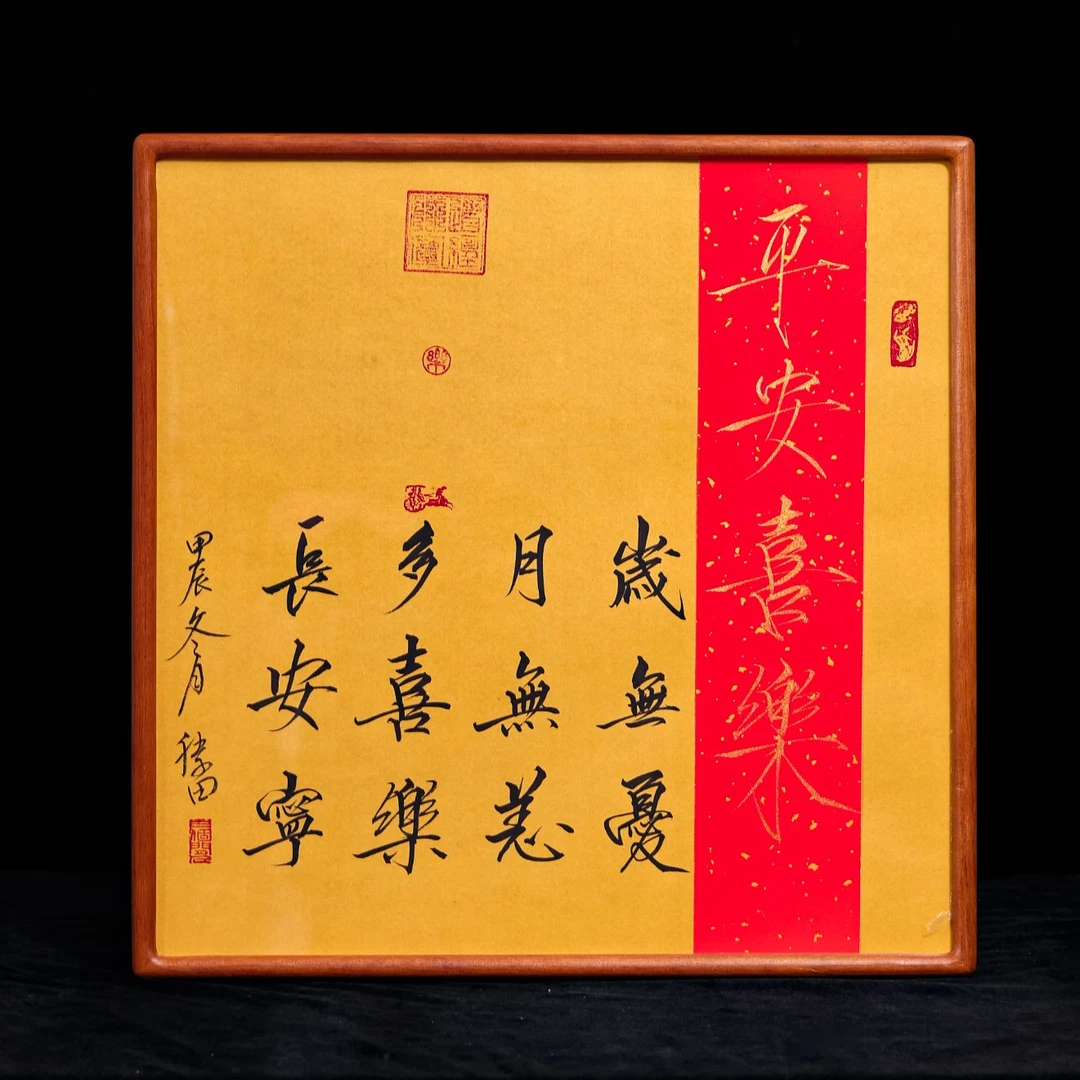 平安喜樂
歲無憂
月無恙
多喜樂
長安寧
甲辰冬月